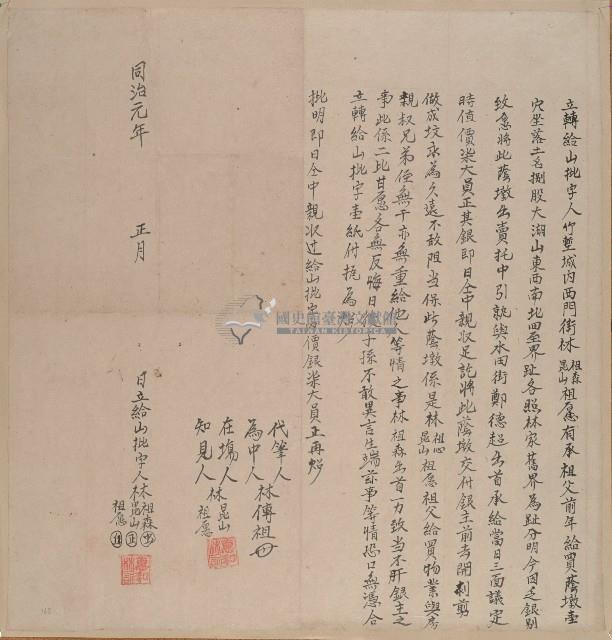 立轉給山批字人竹塹城內西門街林祖森昆山祖愿有承祖父前年給買蔭墩壹
穴坐落土名捌股大湖山東西南北四至界趾各照林家舊界為趾分明今因乏銀別
致愿將此蔭墩出賣托中引就與水田街鄭德超出首承給當日三面議定
時值價柒大員正其銀即日仝中親收足訖將此蔭墩交付銀主前去開剪
做成坟永為久遠不敢阻当保此蔭墩係是林祖森昆山祖愿祖父給買物業與房
親叔兄弟侄無干亦無重給他人等情之事林祖森出首一力抵当不干銀主之
事此係二比甘愿各無反悔日後子孫不敢異言生端滋事等情恐口無憑合
立轉給山批字壹紙付执為炤
批明即日仝中親收过給山批字內價銀柒大員正再炤
代筆人
為中人林傳祖
在塲人林昆山
知見人祖愿
同治元年 正月
日立給山批字人林祖森昆山祖愿
國史館臺灣文獻館
TAIWAN HISTORICA